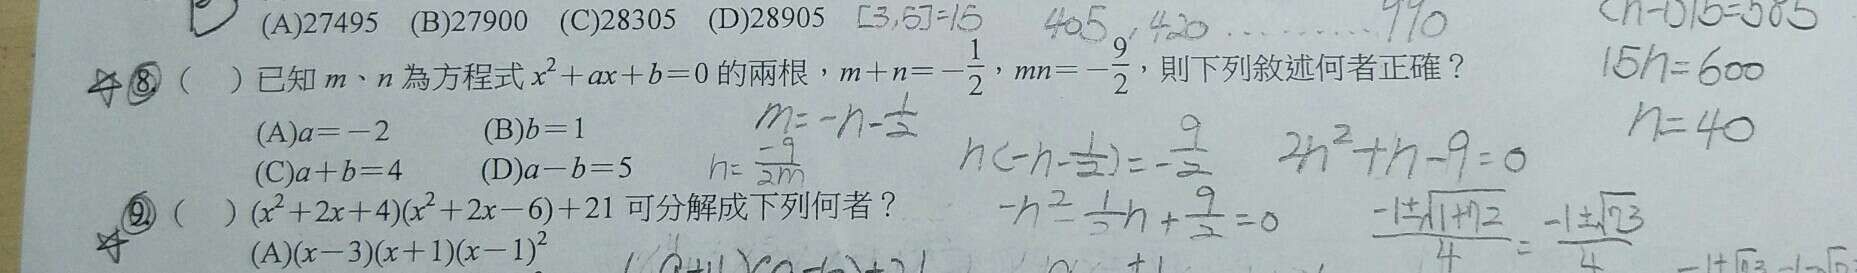 (A)27495 (B)27900 (C)28305 (D)28905 [3,5]=15 405,420..........990 (n-1)15=585
☆8. ( ) 已知 m、n 為方程式 x²+ax+b=0 的兩根，m+n=-1/2，mn=-9/2，則下列敘述何者正確？ 15n=600
(A)a=-2 (B)b=1 m=-n-1/2 n=40
(C)a+b=4 (D)a-b=5 n=-9/2m n(-n-1/2)=-9/2 2n²+n-9=0
☆9. ( ) (x²+2x+4)(x²+2x-6)+21 可分解成下列何者？ -n²-1/2n+9/2=0 -1±√1+72/4=-1±√73/4
(A)(x-3)(x+1)(x-1)²